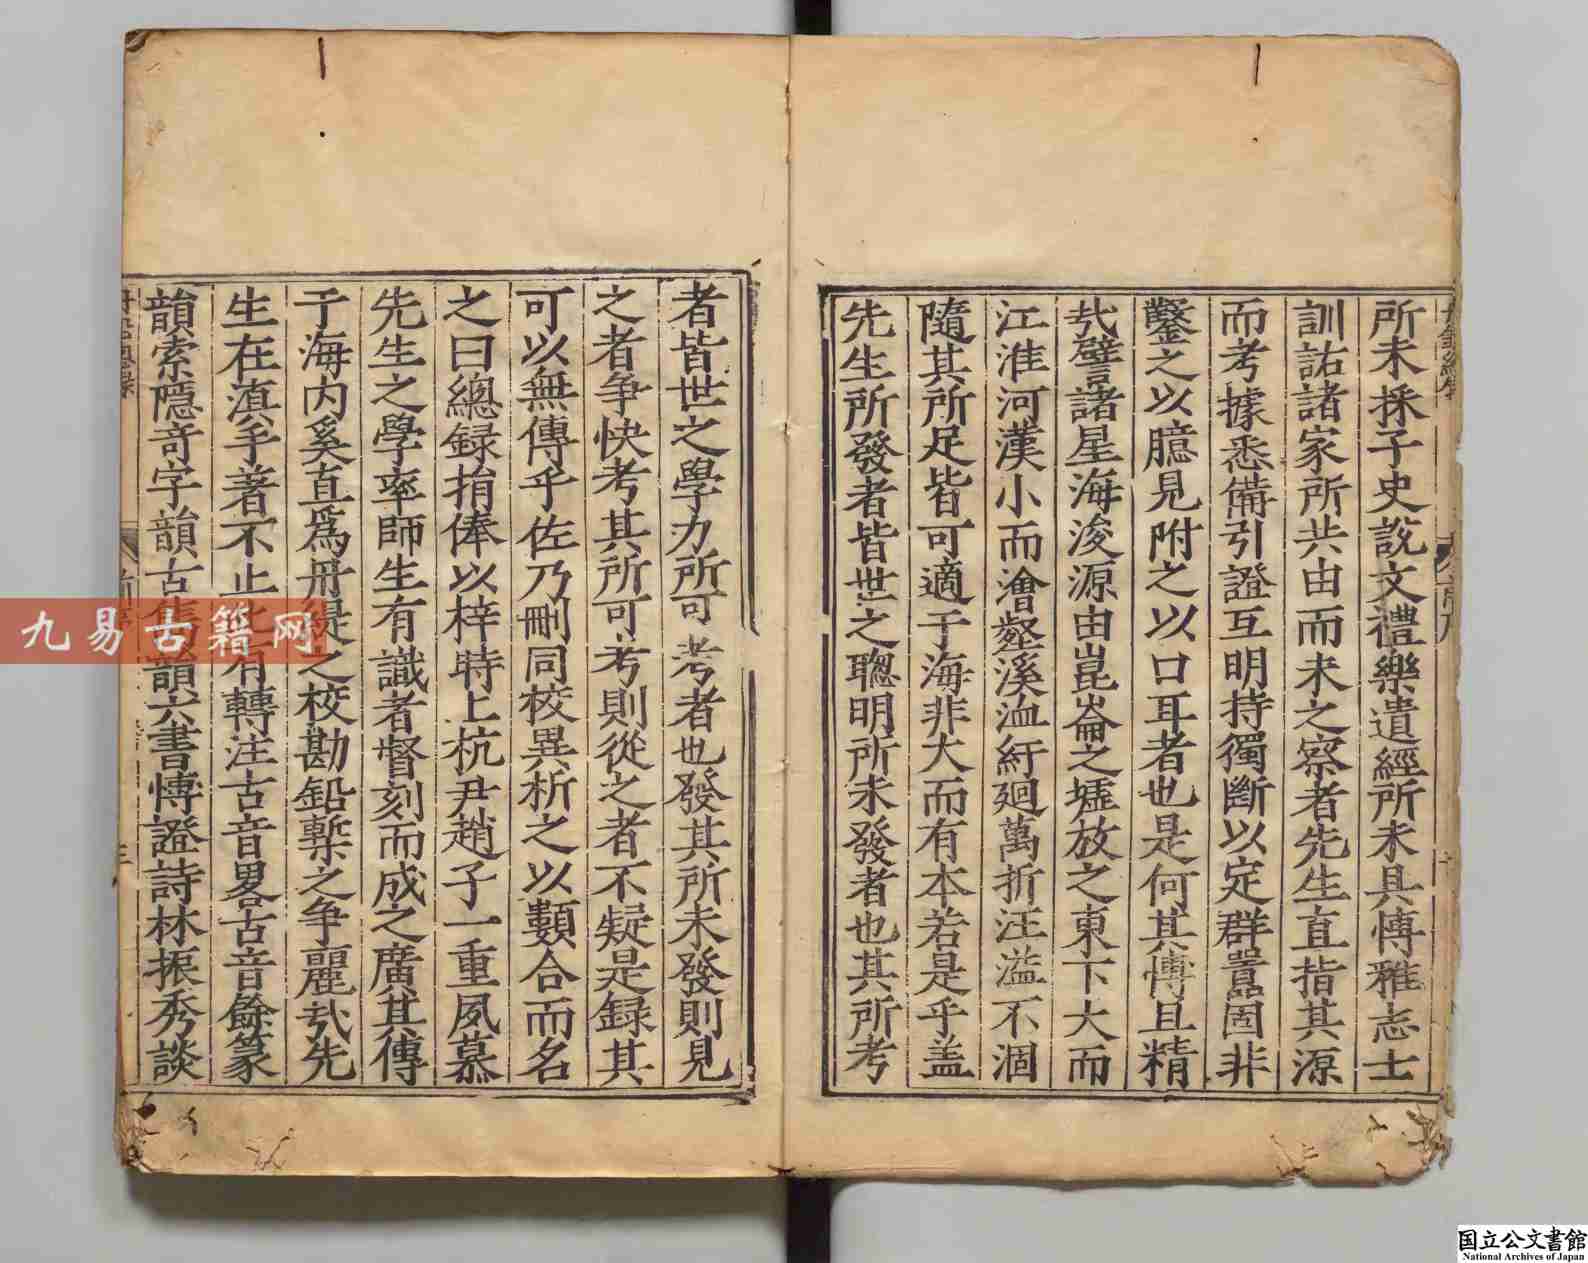 所未採子史說文禮樂遺經所未具博雅志士
訓詁諸家所共由而未之察者先生直指其源
而考據悉備引證互明持獨斷以定群囂固非
鑿之以臆見附之以口耳者也是何其博且精
哉譬諸星海浚源由崑崙之墟放之東下大而
江淮河漢小而澮壑溪洫紆廻萬折汪溢不涸
隨其所足皆可適于海非大而有本若是乎盖
先生所發者皆世之聰明所未發者也其所考
者皆世之學力所可考者也發其所未發則見
之者争快考其所可考則從之者不疑是録其
可以無傳乎佐乃刪同校異析之以類合而名
之曰總録捐俸以梓時上杭尹趙子一重夙慕
先生之學率師生有識者督刻而成之廣其傳
于海内奚直爲丹緹之校勘鉛槧之争麗哉先
生在滇手著不止此有轉注古音畧古音餘篆
韻索隱竒字韻古隻韻六書博證詩林振秀談
丹鉛總錄
前序
三
九易古籍网
国立公文書館
National Archives of Japan